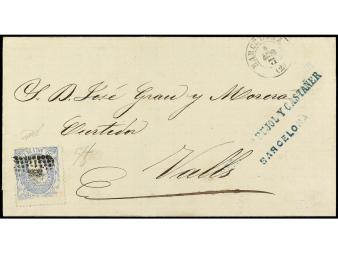 BARCELONA
71
S. D. José Grau y Morera
Curtidor
Valls
PUJOL Y CASTAÑER
BARCELONA